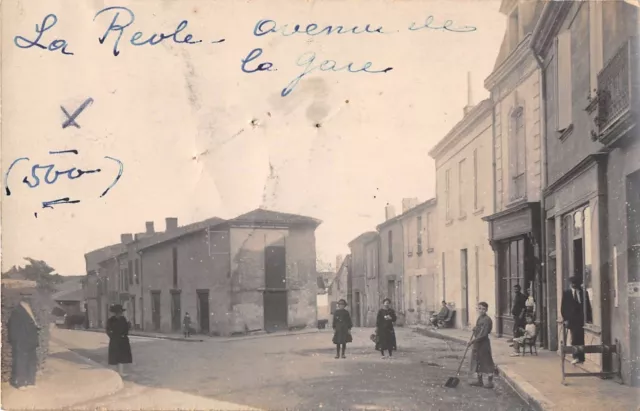 La Reole - avenue de
la gare
X
(500)